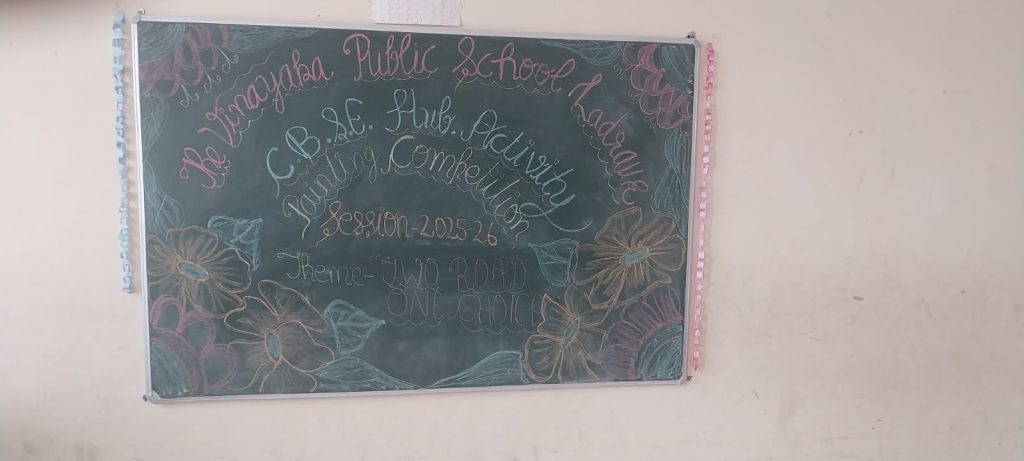 The Vinayaka Public School Ladrawe
C.B.S.E. Hub. Activity
Painting Competition
Session-2025-26
Theme- "TWO ROAD
ONE CHOICE